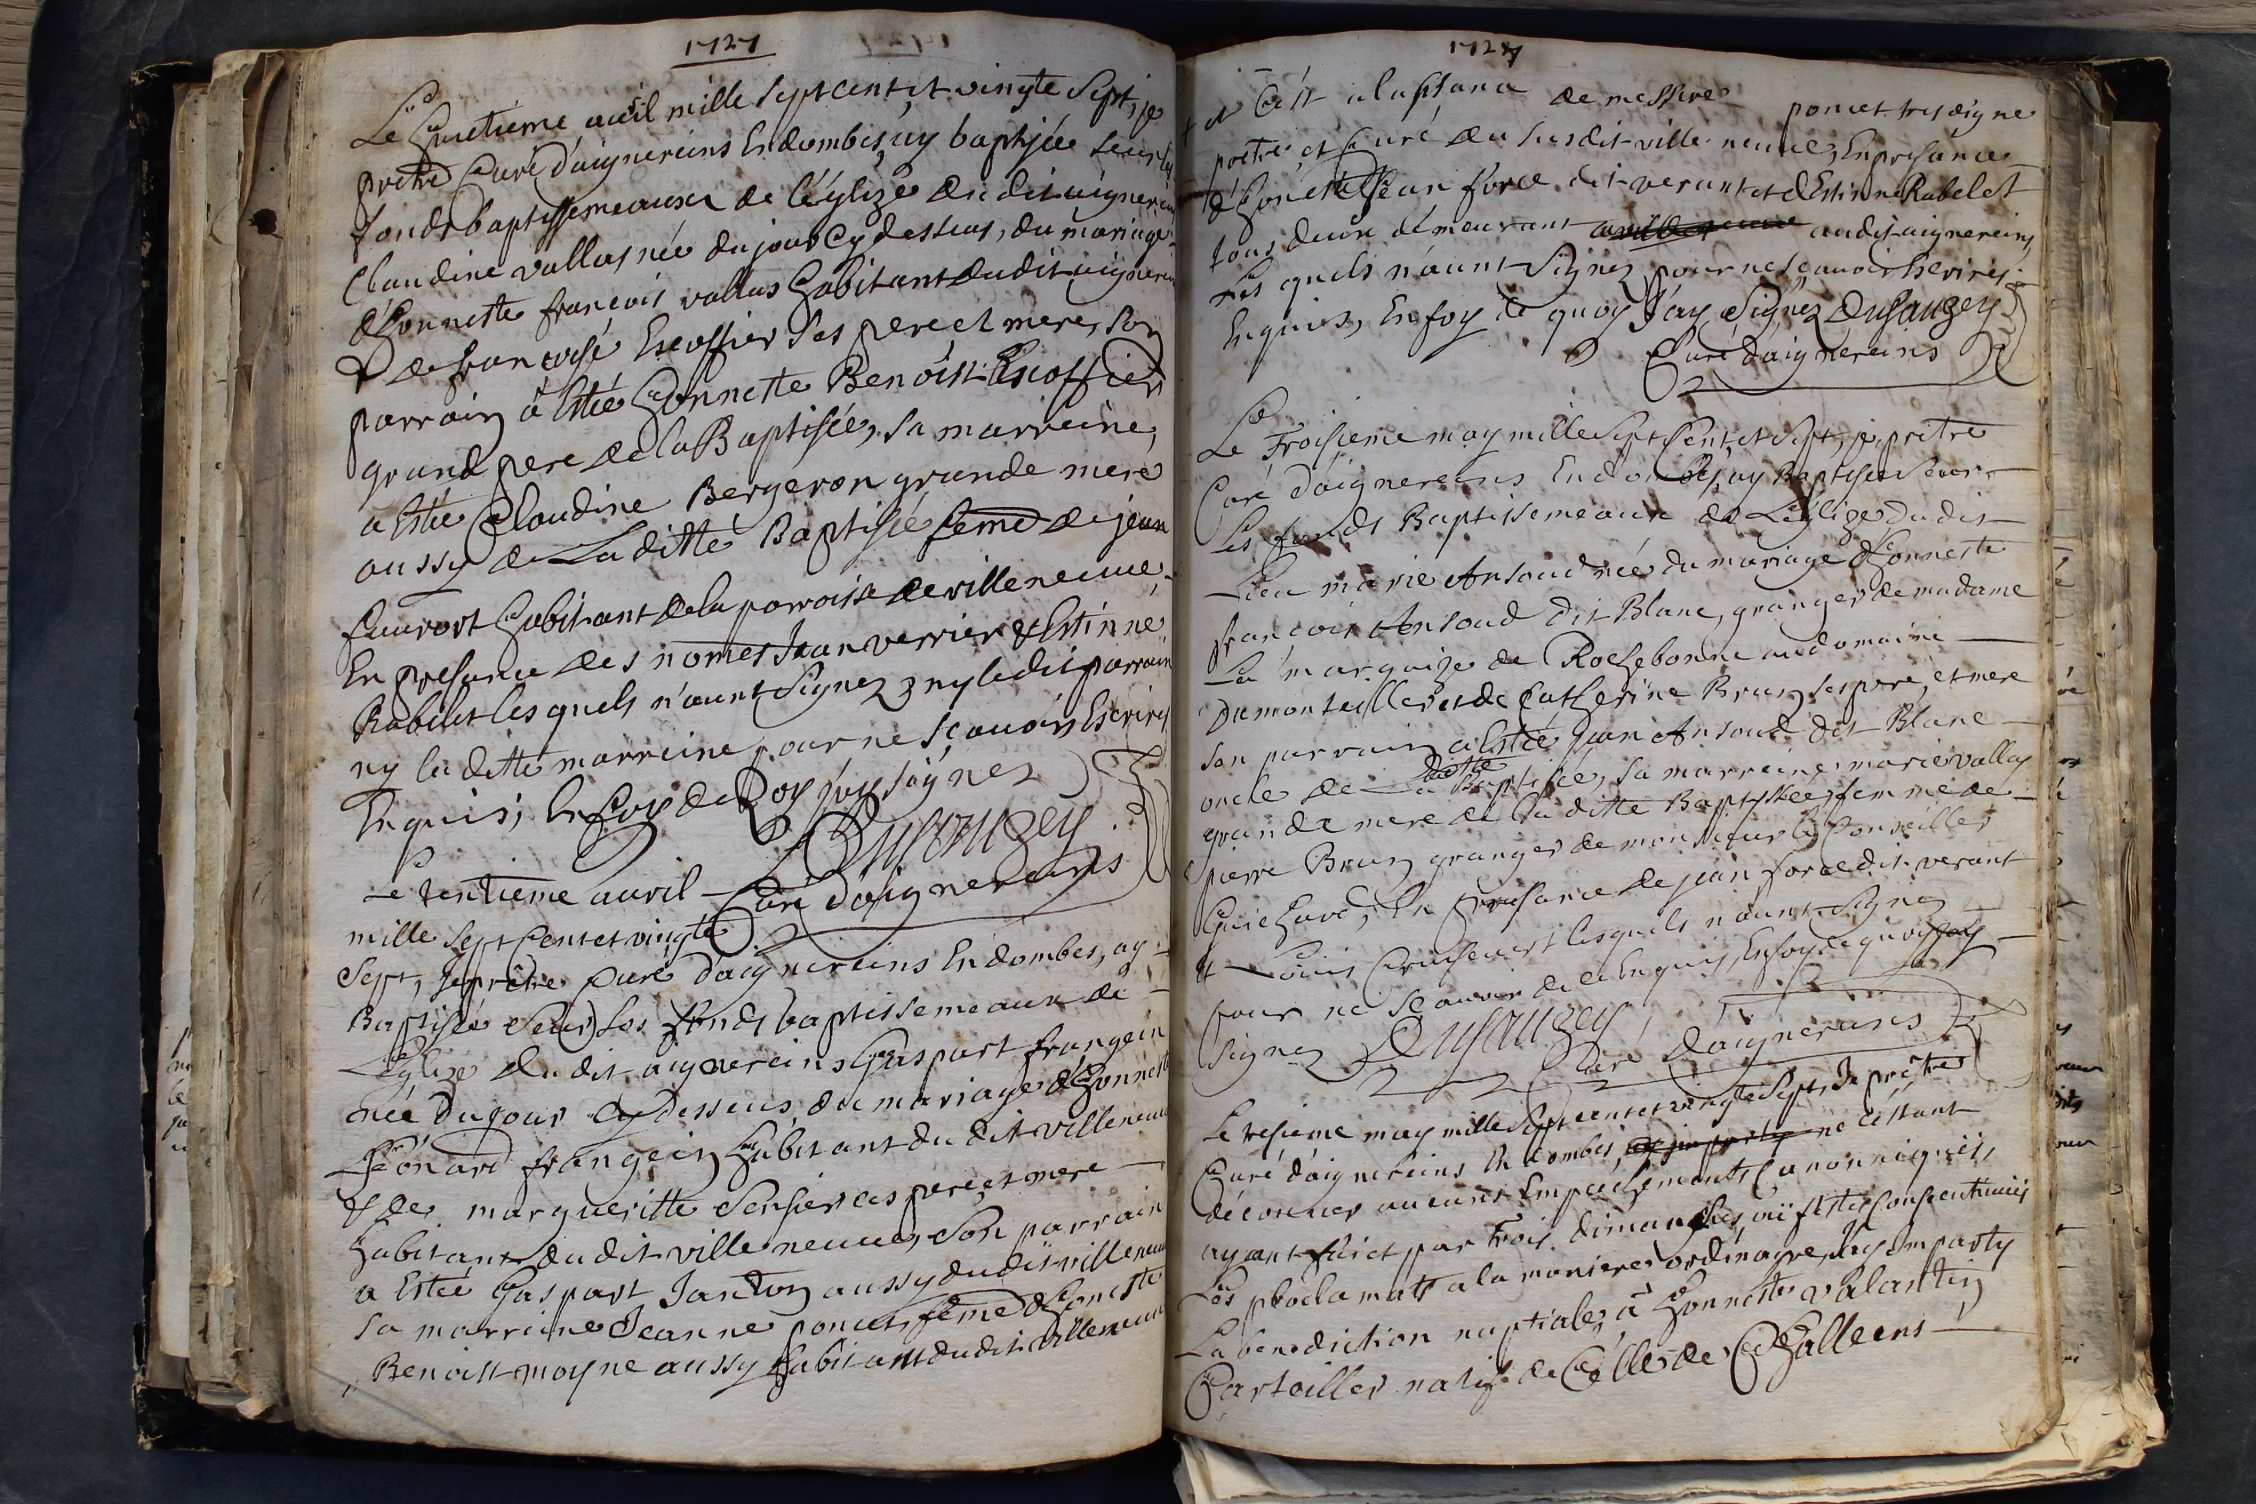 1727
Le huictieme avril mille sept cent et vingte sept, je
prêtre Curé d'aignereins En dombes, ay baptisée seur les
fonds baptissemeaux de l'églize du dit aignereins
Claudine vallas née du jour Cy dessus, du mariage
d'honneste françois vallas habitant du dit aignereins
& de françoise Escoffier ses pere et mere, son
parrain à Estée honneste Benoist Escoffier
grand pere de la Baptisée, sa marreine,
a Estée Claudine Bergeron grande mere
aussy de La ditte Baptisée feme de jean
habitant de la paroisse de villeneuve
En presence des només Jean verrier & Estinne
Rabelet les quels n'aunt signez ny le dit parrain
ny la ditte marreine pour ne sçauoir Escrires
Enquis, En foy de Quoy j'ay signez
Dusauzey
Le trentieme auril Curé d'aignereins
mille sept Cent et vingte
sept, je prêtre Curé d'aignereins En dombes, ay
Baptisée seur Les fonds baptissemeaux de
L'églize du dit aignereins Gaspart frangein
née du jour Cy dessus, du mariage d'honneste
Léonard frangein habitant du dit villeneuve
& de margueritte ses pere et mere
habitant du dit villeneuve, Son parrain
a Estée Gaspart Janton aussy du dit villeneuve
sa marreine Jeanne poncet, feme d'honeste
Benoist moyne aussy habitant du dit villeneuve
1727
et Cest a la de messire poncet tres digne
prêtre et Curé du susdit villeneuve, En presance
d'honeste Jean force dit verant et d'Estinne Rabelet
tous deux demeurant au dit aignereins
Les quels n'aunt signez pour ne sçauoir Escrires
Enquis, En foy de quoy J'ay signez Dusauzey
Curé d'aignereins
Le Troisieme may mille sept Cent et sept, je prêtre
Curé d'aignereins En dombes, ay Baptisée seur
Les fonds Baptissemeaux de L'églize du dit
Lieu marie Ansoud née du mariage d'honneste
françois Ansoud dit Blanc, granger de madame
La marquize de Rochebonne au domaine
Du montellier et de Catherine Brun ses pere et mere
son parrain a Estée Jean Ansoud dit Blanc
oncle de La ditte Baptisée, sa marreine marie vallas
grande mere de la ditte Baptisée, femme de
pierre Brun granger de monsieur le Conseiller
En presance de jean force dit verant
et Louis lesquels n'aunt signez
pour ne sçauoir de ce Enquis, En foy de quoy j'ay
signez Dusauzey
Curé d'aignereins
Le tresieme may mille sept cent et vingte sept, Je prêtre
Curé d'aignereins En dombes ne c'estant
découuer aucuns Empechements Canonniques,
ayant faict par Trois dimanches, ou festes consecutiues
Les proclamats a la maniere ordinayre, J'ay Imparty
La benediction nuptiale, à honneste valantin
Chartoilles natif de Celle de Challeins